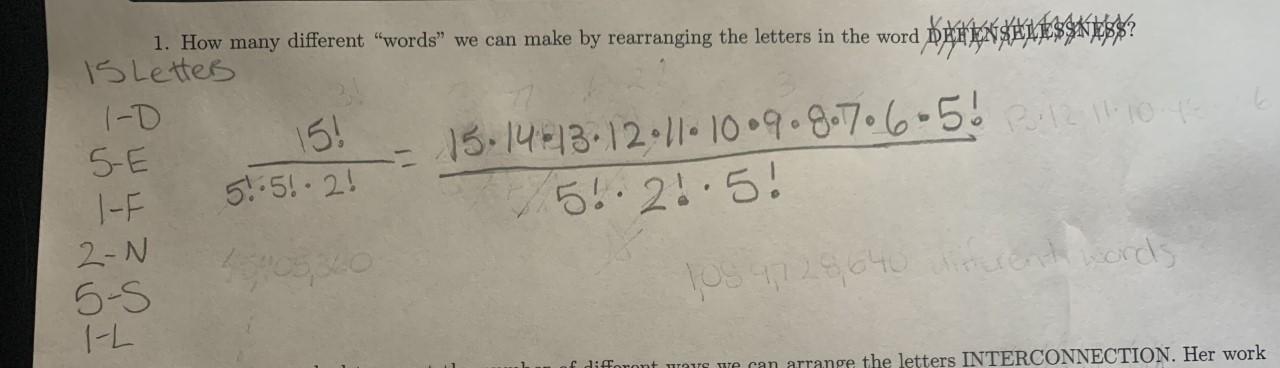 1. How many different “words” we can make by rearranging the letters in the word DEFENSELESSNESS?
15 Letters
1-D
5-E
1-F
2-N
5-S
1-L
15! / 5!·5!·2! = 15·14·13·12·11·10·9·8·7·6·5! / 5!·2!·5!
different words
of different ways we can arrange the letters INTERCONNECTION. Her work